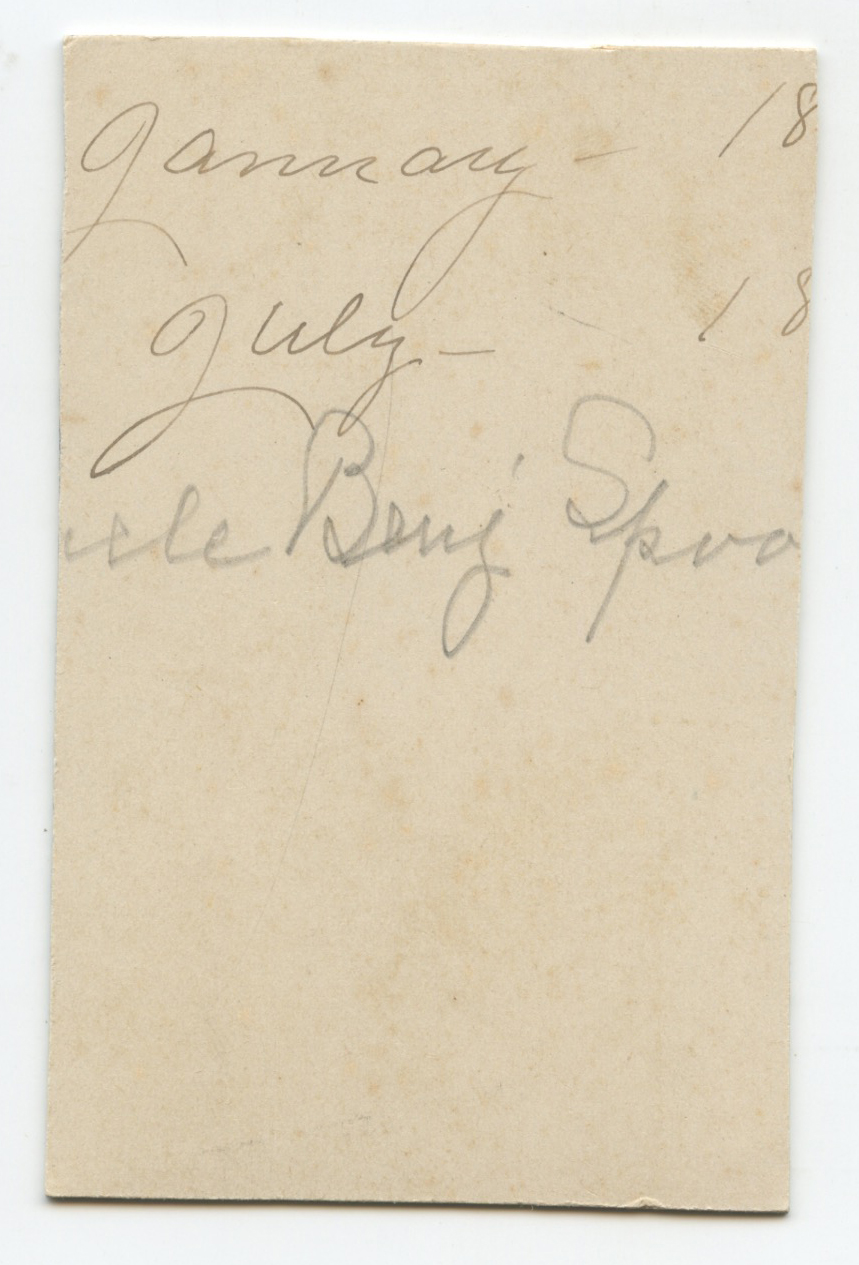 January - 18
July - 18
ncle Benj' Spoo